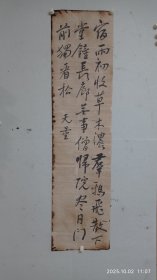 宿雨初收草木濃羣鴉飛散下
堂鐘長廊無事僧歸院盡日門
前獨看松 天量
2025.10.02 11:07